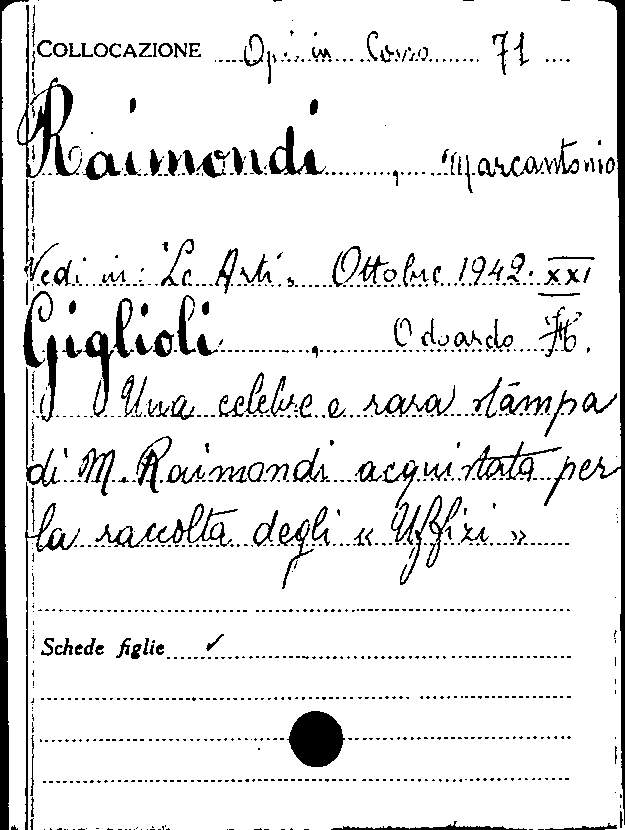 COLLOCAZIONE Op. in Corso 71
Raimondi, Marcantonio
Vedi in: "Le Arti". Ottobre 1942. XXI
Giglioli, Odoardo H.
Una celebre e rara stampa
di M. Raimondi acquistata per
la raccolta degli « Uffizi »
Schede figlie ✓